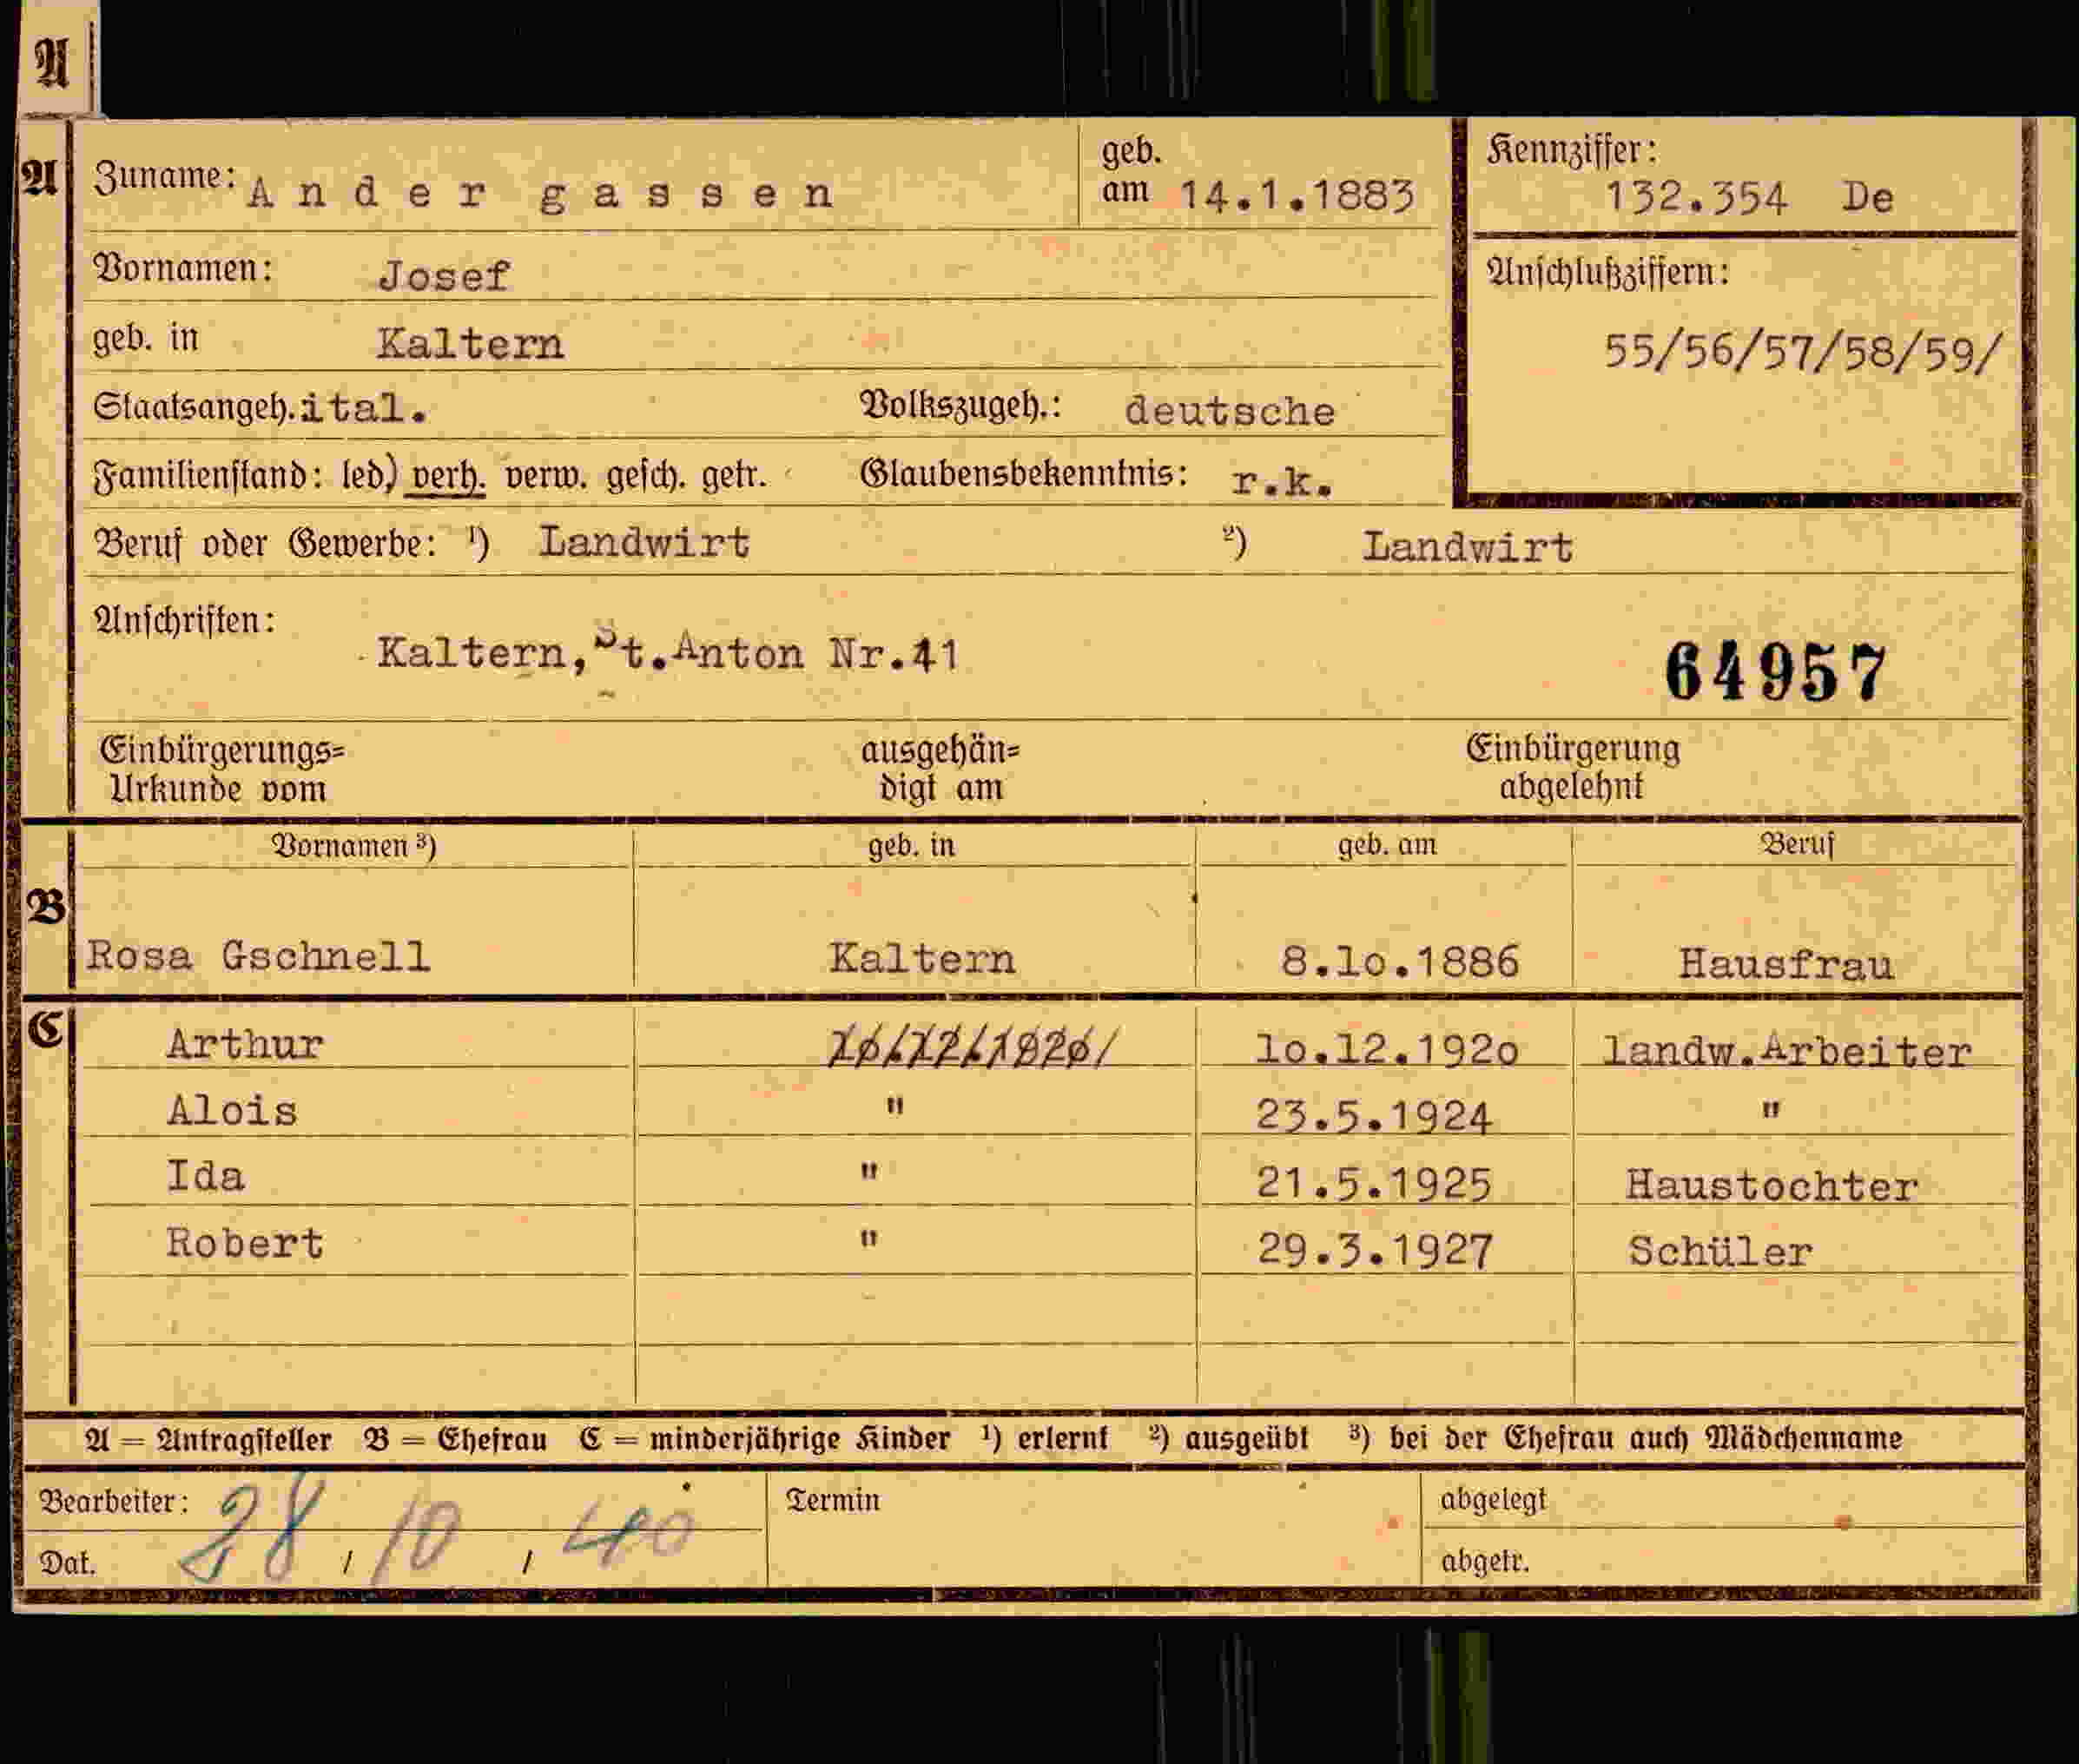 A
A Zuname: Ander gassen geb. am 14.1.1883 Kennziffer: 132.354 De
Vornamen: Josef Anschlußziffern:
geb. in Kaltern 55/56/57/58/59/
Staatsangeh. ital. Volkszugeh.: deutsche
Familienstand: led) verh. verw. gesch. getr. Glaubensbekenntnis: r.k.
Beruf oder Gewerbe: ¹) Landwirt ²) Landwirt
Anschriften:
Kaltern, St.Anton Nr.41 64957
Einbürgerungs= ausgehän= Einbürgerung
Urkunde vom digt am abgelehnt
Vornamen ³) geb. in geb. am Beruf
B
Rosa Gschnell Kaltern 8.lo.1886 Hausfrau
C Arthur 10.12.1920/ lo.12.192o landw.Arbeiter
Alois " 23.5.1924 "
Ida " 21.5.1925 Haustochter
Robert " 29.3.1927 Schüler
A = Antragsteller B = Ehefrau C = minderjährige Kinder ¹) erlernt ²) ausgeübt ³) bei der Ehefrau auch Mädchenname
Bearbeiter: Termin abgelegt
Dat. 28 / 10 / 40 abgetr.